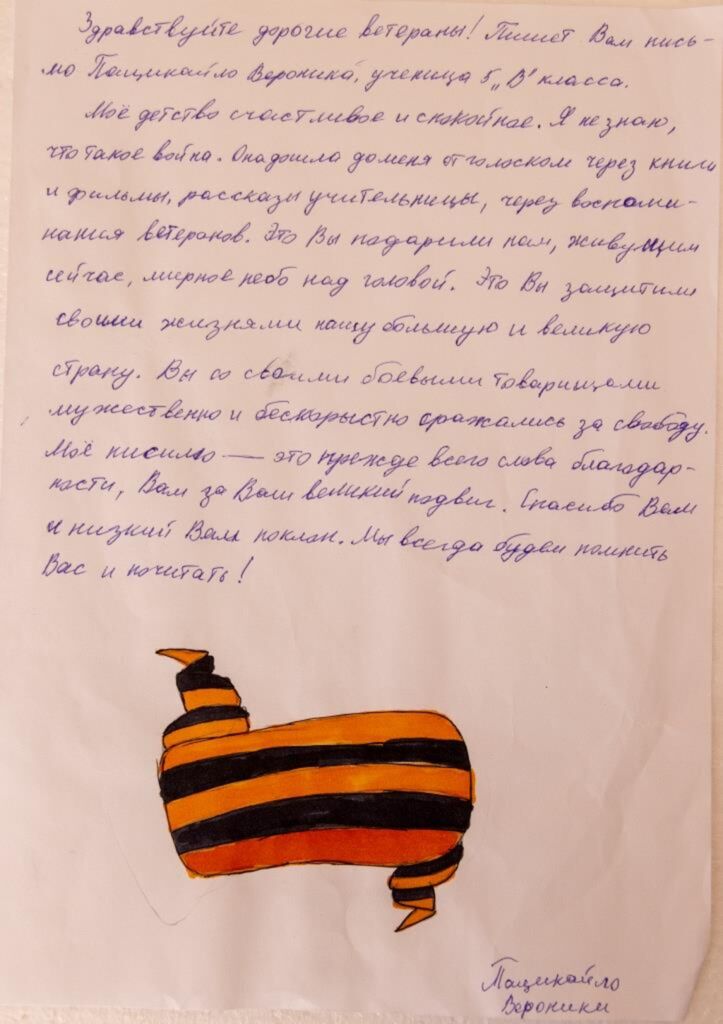 Здравствуйте дорогие ветераны! Пишет Вам пись-
мо Пащикайло Вероника, ученица 5 „В" класса.
Моё детство счастливое и спокойное. Я не знаю,
что такое война. Она дошла до меня отголоском через книги
и фильмы, рассказы учительницы, через воспоми-
нания ветеранов. Это Вы подарили нам, живущим
сейчас, мирное небо над головой. Это Вы защитили
своими жизнями нашу большую и великую
страну. Вы со своими боевыми товарищами
мужественно и бескорыстно сражались за свободу.
Моё письмо — это прежде всего слова благодар-
ности, Вам за Ваш великий подвиг. Спасибо Вам
и низкий Вам поклон. Мы всегда будем помнить
Вас и почитать!
Пащикайло
Вероники